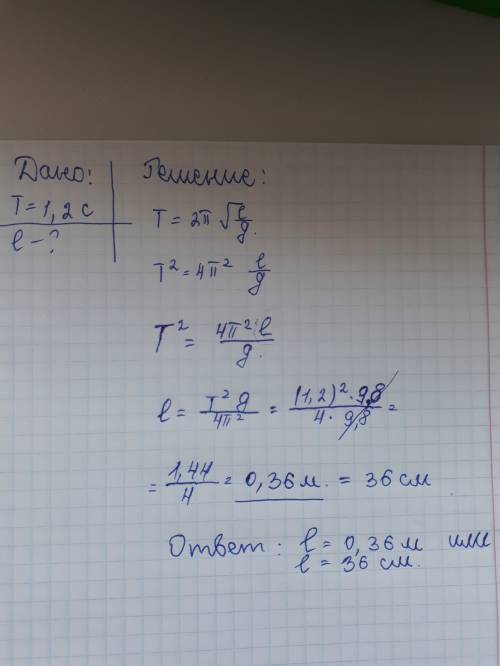 Дано:
T = 1,2 с
l - ?
Решение:
T = 2π √l/g.
T² = 4π² l/g
T² = 4π² l / g.
l = T² g / 4π² = (1,2)² · 9,8 / 4 · 9,8 =
= 1,44 / 4 = 0,36 м. = 36 см
Ответ: l = 0,36 м или
l = 36 см.